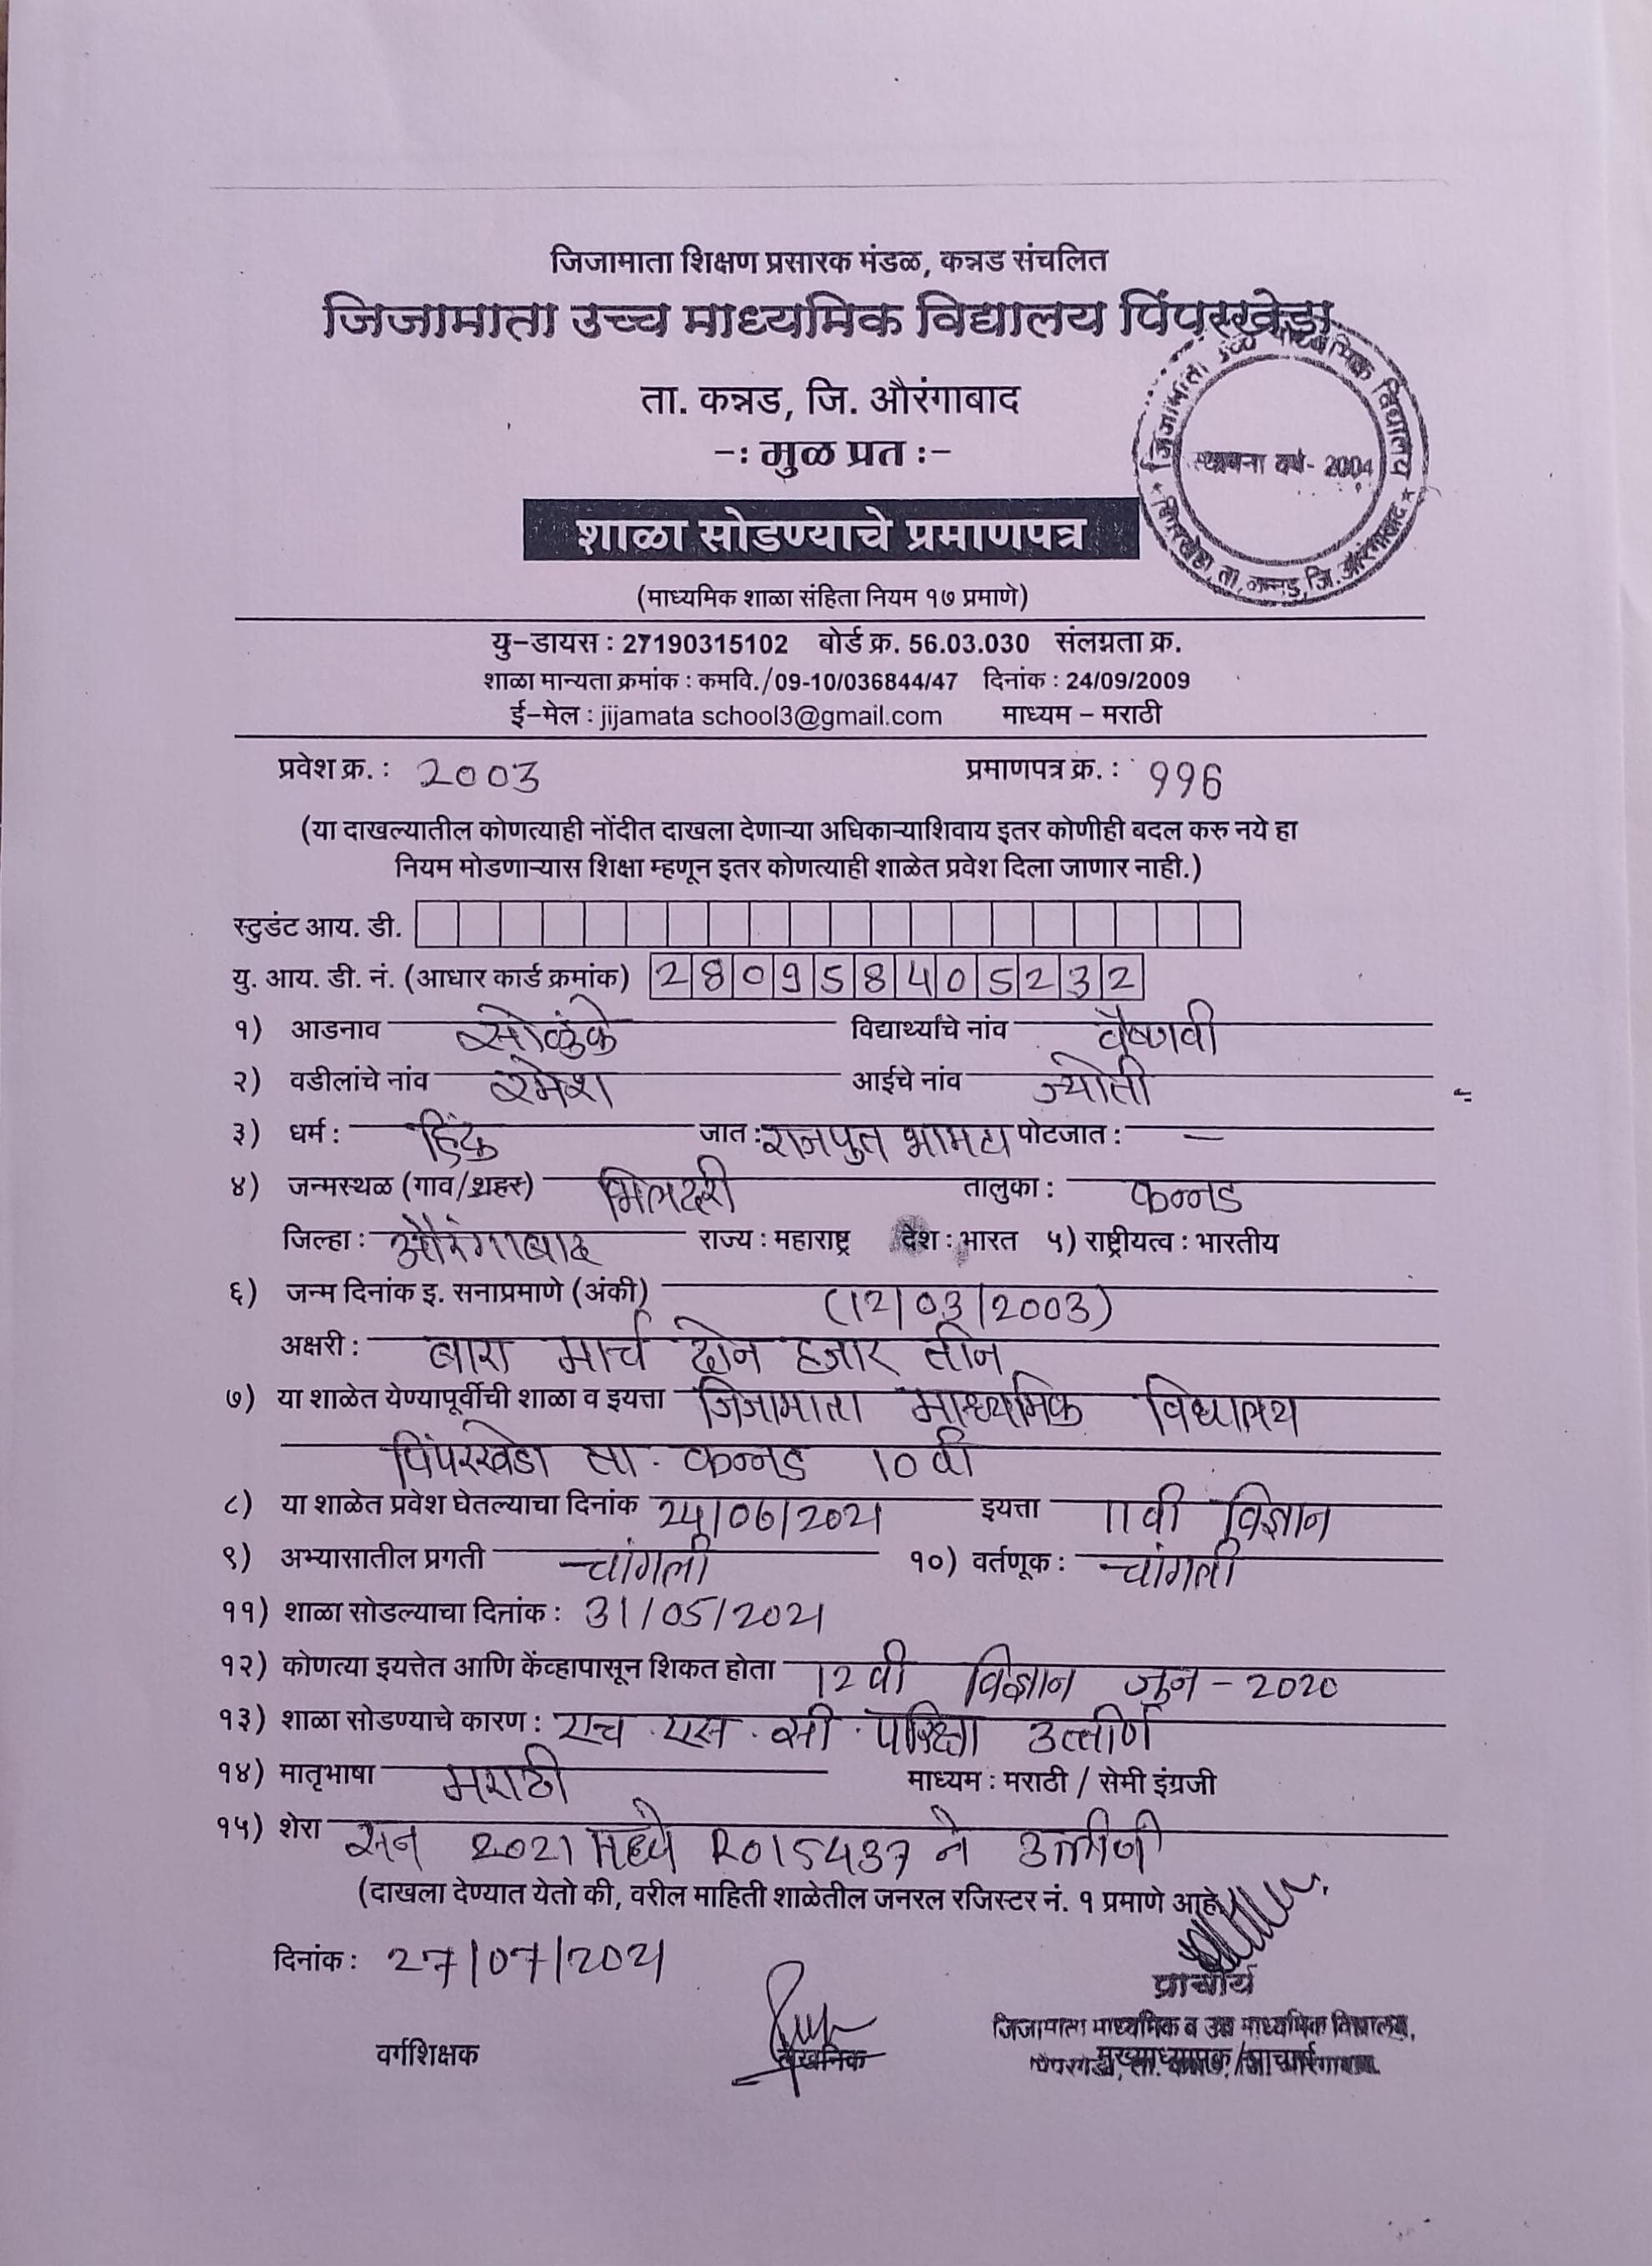 जिजामाता शिक्षण प्रसारक मंडळ, कन्नड संचलित
जिजामाता उच्च माध्यमिक विद्यालय पिंपरखेडा
ता. कन्नड, जि. औरंगाबाद
-: मुळ प्रत :-
जिजामाता उच्च माध्यमिक विद्यालय
स्थापना वर्ष- 2004
पिंपरखेडा, ता. कन्नड, जि. औरंगाबाद
शाळा सोडण्याचे प्रमाणपत्र
(माध्यमिक शाळा संहिता नियम १७ प्रमाणे)
यु-डायस : 27190315102 बोर्ड क्र. 56.03.030 संलग्नता क्र.
शाळा मान्यता क्रमांक : कमवि./09-10/036844/47 दिनांक : 24/09/2009
ई-मेल : jijamata school3@gmail.com माध्यम - मराठी
प्रवेश क्र. : 2003 प्रमाणपत्र क्र. : 996
(या दाखल्यातील कोणत्याही नोंदीत दाखला देणाऱ्या अधिकाऱ्याशिवाय इतर कोणीही बदल करु नये हा
नियम मोडणाऱ्यास शिक्षा म्हणून इतर कोणत्याही शाळेत प्रवेश दिला जाणार नाही.)
स्टुडंट आय. डी.
यु. आय. डी. नं. (आधार कार्ड क्रमांक) 280958405232
१) आडनाव सोळुंके विद्यार्थ्यांचे नांव वैष्णवी
२) वडीलांचे नांव रमेश आईचे नांव ज्योती
३) धर्म : हिंदु जात : राजपुत भामटा पोटजात : —
४) जन्मस्थळ (गाव/शहर) भिलदरी तालुका : कन्नड
जिल्हा : औरंगाबाद राज्य : महाराष्ट्र देश : भारत ५) राष्ट्रीयत्व : भारतीय
६) जन्म दिनांक इ. सनाप्रमाणे (अंकी) (12/03/2003)
अक्षरी : बारा मार्च दोन हजार तीन
७) या शाळेत येण्यापूर्वीची शाळा व इयत्ता जिजामाता माध्यमिक विद्यालय
पिंपरखेडा ता. कन्नड 10 वी
८) या शाळेत प्रवेश घेतल्याचा दिनांक 24/06/2021 इयत्ता 11वी विज्ञान
९) अभ्यासातील प्रगती चांगली १०) वर्तणूक : चांगली
११) शाळा सोडल्याचा दिनांक : 31/05/2021
१२) कोणत्या इयत्तेत आणि केंव्हापासून शिकत होता 12 वी विज्ञान जुन - 2020
१३) शाळा सोडण्याचे कारण : एच . एस . सी . परिक्षा उत्तीर्ण
१४) मातृभाषा मराठी माध्यम : मराठी / सेमी इंग्रजी
१५) शेरा सन 2021 मध्ये R015437 ने उत्तीर्ण
(दाखला देण्यात येतो की, वरील माहिती शाळेतील जनरल रजिस्टर नं. १ प्रमाणे आहे)
दिनांक : 27/07/2021
प्राचार्य
जिजामाता माध्यमिक व उच्च माध्यमिक विद्यालय,
वर्गशिक्षक लेखनिक मुख्याध्यापक/प्राचार्य